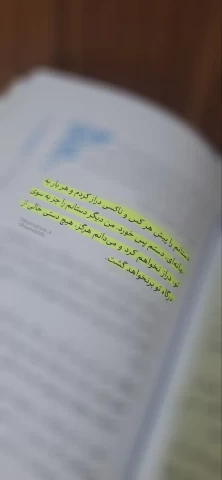 دستانم را پیش هر کس و ناکسی دراز کردم و هر بار به
بهانه‌ای دستم پس خورد. من دیگر دستانم را جز به سوی
تو دراز نخواهم کرد و می‌دانم هرگز، هیچ دستی خالی از
درگاه تو برنخواهد گشت.